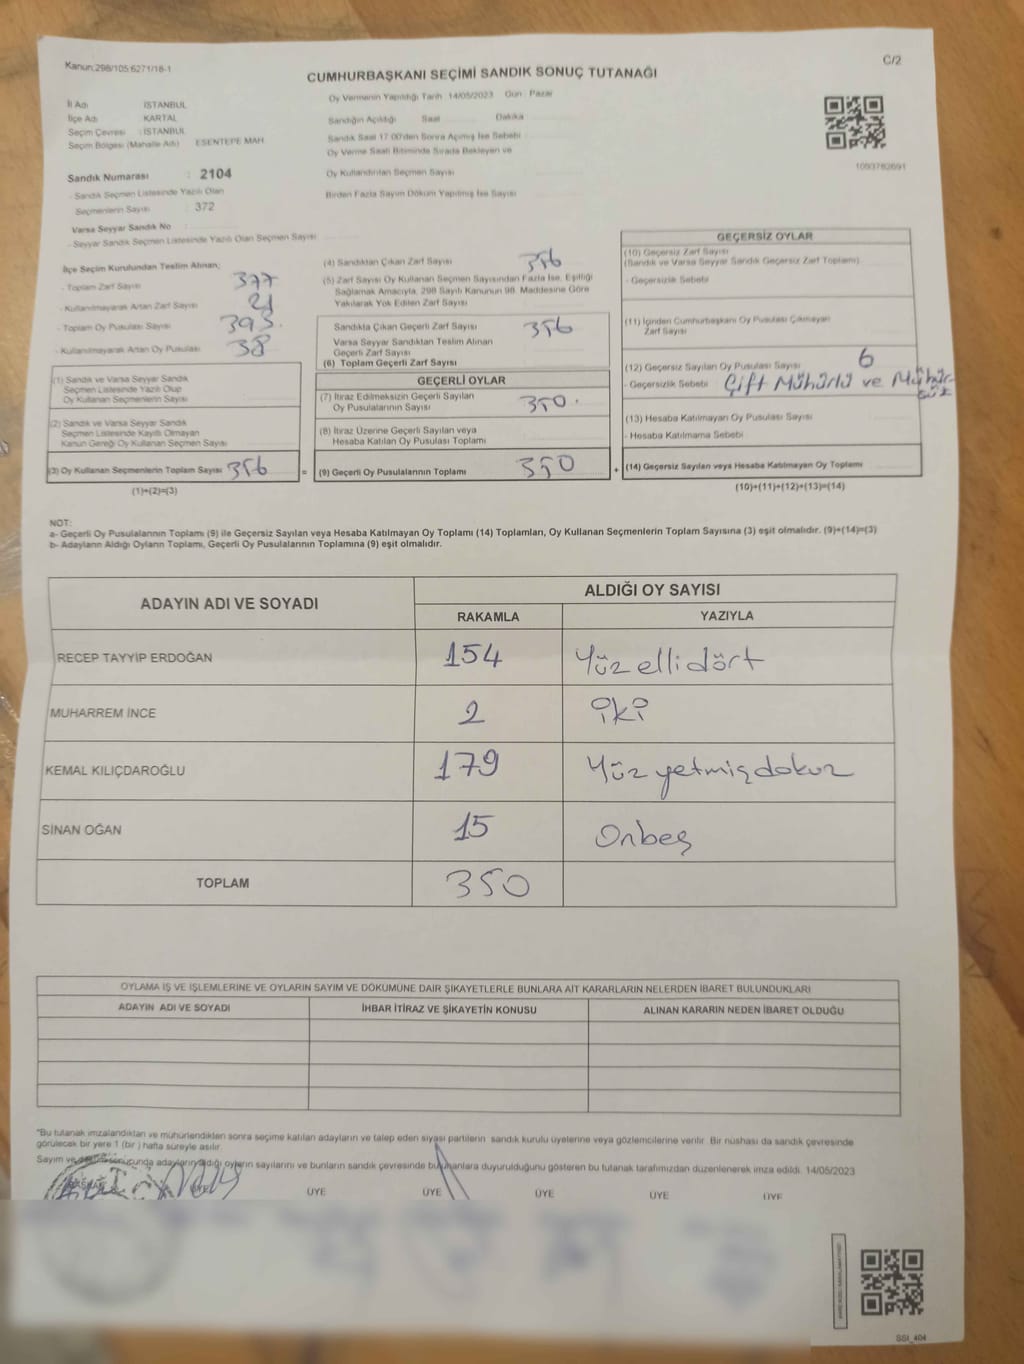 Kanun:298/105:6271/18-1
C/2
CUMHURBAŞKANI SEÇİMİ SANDIK SONUÇ TUTANAĞI
İl Adı : İSTANBUL
İlçe Adı : KARTAL
Seçim Çevresi : İSTANBUL
Seçim Bölgesi (Mahalle Adı) : ESENTEPE MAH.
Oy Vermenin Yapıldığı Tarih : 14/05/2023 Gün : Pazar
Sandığın Açıldığı Saat Dakika
Sandık Saat 17.00'den Sonra Açılmış İse Sebebi
Oy Verme Saati Bitiminde Sırada Bekleyen ve
Oy Kullandırılan Seçmen Sayısı
Birden Fazla Sayım Döküm Yapılmış İse Sayısı
1093782691
Sandık Numarası : 2104
- Sandık Seçmen Listesinde Yazılı Olan
Seçmenlerin Sayısı : 372
Varsa Seyyar Sandık No
- Seyyar Sandık Seçmen Listesinde Yazılı Olan Seçmen Sayısı
İlçe Seçim Kurulundan Teslim Alınan;
- Toplam Zarf Sayısı 377
- Kullanılmayarak Artan Zarf Sayısı 21
- Toplam Oy Pusulası Sayısı 395.
- Kullanılmayarak Artan Oy Pusulası 38
(1) Sandık ve Varsa Seyyar Sandık
Seçmen Listesinde Yazılı Olup
Oy Kullanan Seçmenlerin Sayısı
(2) Sandık ve Varsa Seyyar Sandık
Seçmen Listesinde Kayıtlı Olmayan
Kanun Gereği Oy Kullanan Seçmen Sayısı
(3) Oy Kullanan Seçmenlerin Toplam Sayısı 356
(1)+(2)=(3)
(4) Sandıktan Çıkan Zarf Sayısı 356
(5) Zarf Sayısı Oy Kullanan Seçmen Sayısından Fazla İse, Eşitliği
Sağlamak Amacıyla, 298 Sayılı Kanunun 98. Maddesine Göre
Yakılarak Yok Edilen Zarf Sayısı
Sandıkta Çıkan Geçerli Zarf Sayısı 356
Varsa Seyyar Sandıktan Teslim Alınan
Geçerli Zarf Sayısı
(6) Toplam Geçerli Zarf Sayısı
=
GEÇERLİ OYLAR
(7) İtiraz Edilmeksizin Geçerli Sayılan
Oy Pusulalarının Sayısı 350.
(8) İtiraz Üzerine Geçerli Sayılan veya
Hesaba Katılan Oy Pusulası Toplamı
(9) Geçerli Oy Pusulalarının Toplamı 350
+
GEÇERSİZ OYLAR
(10) Geçersiz Zarf Sayısı
(Sandık ve Varsa Seyyar Sandık Geçersiz Zarf Toplamı)
- Geçersizlik Sebebi
(11) İçinden Cumhurbaşkanı Oy Pusulası Çıkmayan
Zarf Sayısı
(12) Geçersiz Sayılan Oy Pusulası Sayısı 6
- Geçersizlik Sebebi Çift Mühürlü ve Mühür-
süz
(13) Hesaba Katılmayan Oy Pusulası Sayısı
- Hesaba Katılmama Sebebi
(14) Geçersiz Sayılan veya Hesaba Katılmayan Oy Toplamı
(10)+(11)+(12)+(13)=(14)
NOT:
a- Geçerli Oy Pusulalarının Toplamı (9) ile Geçersiz Sayılan veya Hesaba Katılmayan Oy Toplamı (14) Toplamları, Oy Kullanan Seçmenlerin Toplam Sayısına (3) eşit olmalıdır. (9)+(14)=(3)
b- Adayların Aldığı Oyların Toplamı, Geçerli Oy Pusulalarının Toplamına (9) eşit olmalıdır.
ADAYIN ADI VE SOYADI
ALDIĞI OY SAYISI
RAKAMLA YAZIYLA
RECEP TAYYİP ERDOĞAN 154 Yüz elli dört
MUHARREM İNCE 2 iki
KEMAL KILIÇDAROĞLU 179 Yüz yetmiş dokuz
SİNAN OĞAN 15 Onbeş
TOPLAM 350
OYLAMA İŞ VE İŞLEMLERİNE VE OYLARIN SAYIM VE DÖKÜMÜNE DAİR ŞİKAYETLERLE BUNLARA AİT KARARLARIN NELERDEN İBARET BULUNDUKLARI
ADAYIN ADI VE SOYADI İHBAR İTİRAZ VE ŞİKAYETİN KONUSU ALINAN KARARIN NEDEN İBARET OLDUĞU
"Bu tutanak imzalandıktan ve mühürlendikten sonra seçime katılan adayların ve talep eden siyasi partilerin sandık kurulu üyelerine veya gözlemcilerine verilir. Bir nüshası da sandık çevresinde
görülecek bir yere 1 (bir ) hafta süreyle asılır.
Sayım ve döküm sonucunda adayların aldığı oyların sayılarını ve bunların sandık çevresinde bulunanlara duyurulduğunu gösteren bu tutanak tarafımızdan düzenlenerek imza edildi. 14/05/2023
BAŞKAN ÜYE ÜYE ÜYE ÜYE ÜYE ÜYE
SSI_404